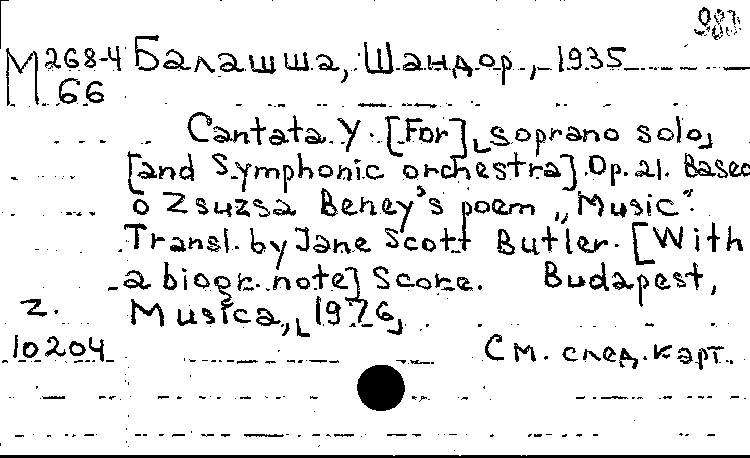 983
М 268-4 Балашша, Шандор, 1935
66
Cantata Y. [For] ⌞soprano solo⌟
[and Symphonic orchestra] Op. 21. Based
o Zsuzsa Beney's poem „Music".
Transl. by Jane Scott Butler. [With
a biogr. note] Score. Budapest,
z. Musica, ⌞1976⌟
10204 См. след. карт.